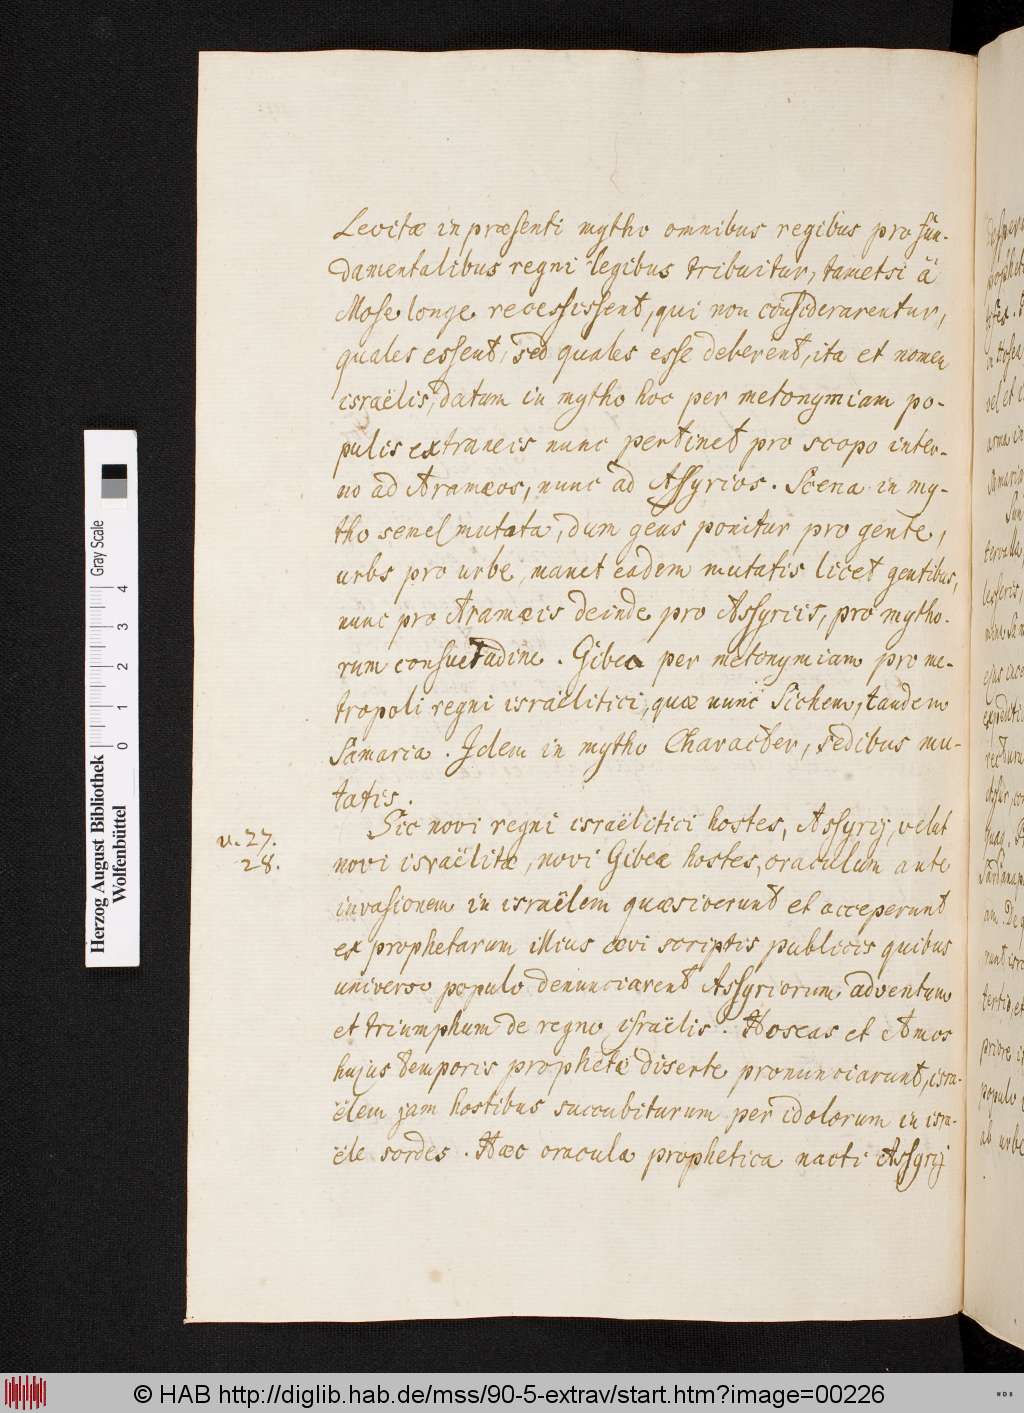 Levitæ in præsenti mytho omnibus regibus pro fun-
damentalibus regni legibus tribuitur, tametsi à
Mose longe recessissent, qui non considerarentur,
quales essent, sed quales esse deberent, ita et nomen
israëlis, datum in mytho hoc per metonymiam po-
pulis extraneis nunc pertinet pro scopo inter-
no ad Aramæos, nunc ad Assyrios. Scena in my-
tho semel mutata, dum gens ponitur pro gente,
urbs pro urbe, manet eadem mutatis licet gentibus,
nunc pro Aramæis deinde pro Assyriis, pro mytho-
rum consuetudine. Gibea per metonymiam pro me-
tropoli regni israëlitici, quæ nunc Sichem, tandem
Samaria. Idem in mytho Character, sedibus mu-
tatis.
Sic novi regni israëlitici hostes, Assyrij, velut
v. 27.
28.
novi israëlitæ, novi Gibeæ hostes, oraculum ante
invasionem in israëlem quæsiverunt et acceperunt
ex prophetarum illius ævi scriptis publicis quibus
universo populo denunciarent Assyriorum adventum
et triumphum de regno israëlis. Hoseas et Amos
hujus temporis prophetæ diserte pronunciarunt, isra-
ëlem jam hostibus succubiturum per idolorum in isra-
ële sordes. Hæc oracula prophetica nacti Assyrij
Herzog August Bibliothek
Wolfenbüttel
0 1 2 3 4
Gray Scale
© HAB http://diglib.hab.de/mss/90-5-extrav/start.htm?image=00226